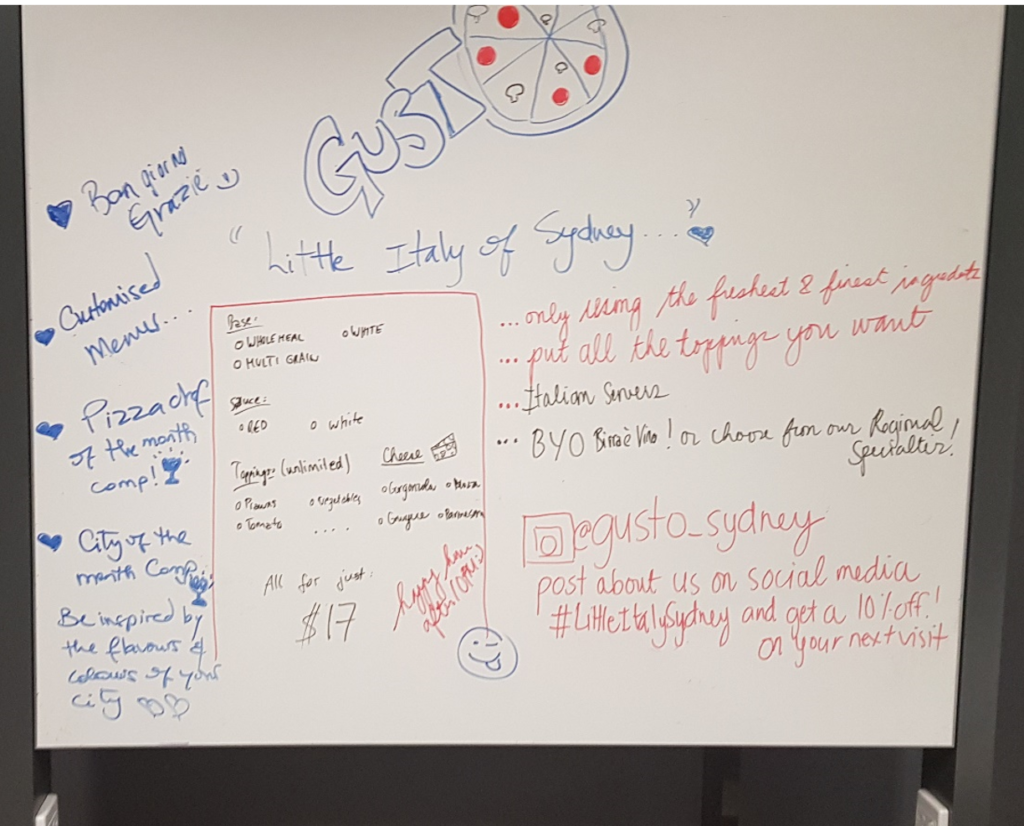 GUSTO
Bon giorno
Grazie
"Little Italy of Sydney..."
Customised
Menus....
Pizza chef
of the month
comp!
City of the
month Comp
Be inspired by
the flavours &
colours of your
city
Base:
WHOLEMEAL
WHITE
MULTI GRAIN
Sauce:
RED
White
Toppings: (unlimited)
Cheese
Prawns
Vegetables
Gorgonzola
Tomato
....
Parmesan
All for just:
$17
happy hour
after 10PM:)
...only using the freshest & finest ingredients
... put all the toppings you want
...Italian Servers
... BYO Birra è Vino! or choose from our Regional
Specialties!
@gusto_sydney
post about us on social media
#LittleItalySydney and get a 10% off!
on your next visit